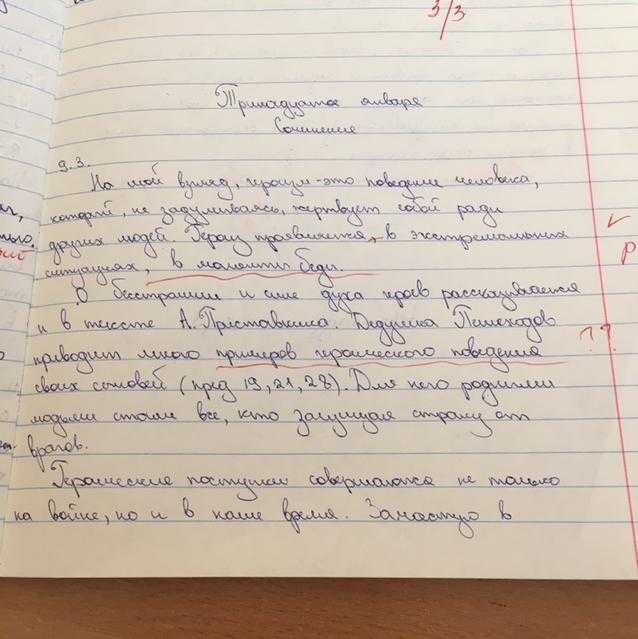 3/3
Тринадцатое января
Сочинение
9.3.
На мой взгляд, героизм - это поведение человека,
который, не задумываясь, жертвует собой ради
других людей. Героизм проявляется, в экстремальных
ситуациях, в моменты беды.
О бесстрашии и силе духа героев рассказывается
и в тексте А. Приставкина. Дедушка Пешеходов
приводит много примеров героического поведения
своих сыновей (пред 19, 21, 28). Для него родными
людьми стали все, кто защищал страну от
врагов.
Героические поступки совершаются не только
на войне, но и в наше время. Зачастую в
V
Р
??